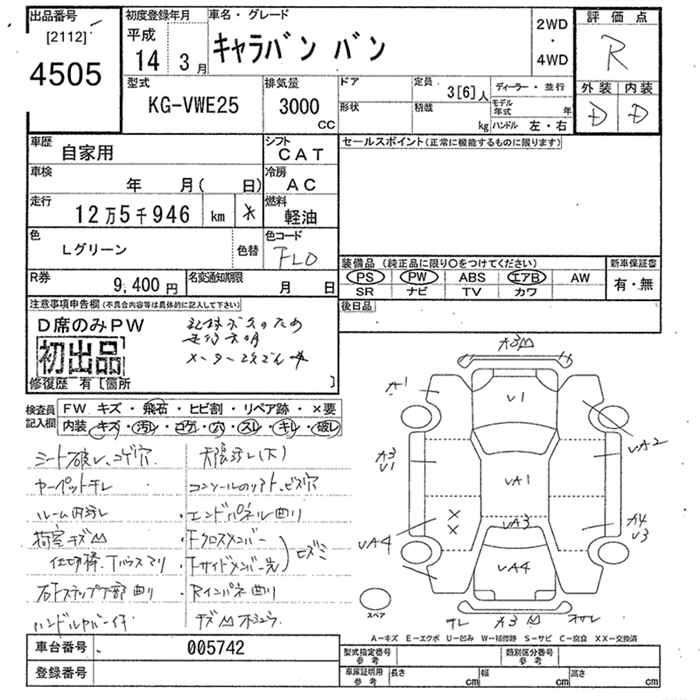 出品番号
[2112]
4505
初度登録年月
平成
14 3月
車名・グレード
キャラバン バン
2WD
・
4WD
評価点
R
外装 内装
D D
型式
KG-VWE25
排気量
3000
CC
ドア
形状
定員 3[6]人
積載 kg
ディーラー・並行
モデル年式 年
ハンドル 左・右
車歴
自家用
シフト
CAT
車検
年 月( 日)
冷房
AC
走行
12万5千946 km *
燃料
軽油
色
Lグリーン
色替
色コード
FL0
R券
9,400円
名変通知期限
月 日
セールスポイント(正常に機能するものに限ります)
装備品 (純正品に限り〇をつけてください)
PS PW ABS エアB AW
SR ナビ TV カワ
新車保証書
有・無
後日品
注意事項申告欄(不具合内容等は具体的に記入して下さい)
D席のみPW
初出品
修復歴 有[箇所 ]
検査員
記入欄
FW キズ・飛石・ヒビ割・リペア跡・×要
内装・キズ・汚レ・コゲ・穴・スレ・キレ・破レ
シート破レ、コゲ穴
天張汚レ(大)
カーペットキレ
ルーム内汚レ
・エンドパネル曲り
荷室キズM
・Fクロスメンバー
・Fサイドメンバー先
サビズミ
右Fステップ下部曲り
・Rインパネ曲り
A3M
A1
U1
UA2
A3
U1
UA1
×
×
UA3
UA4
A4
U3
UA4
スペア
スレ
A3M
A-キズ E-エクボ U-凹み W-補修跡 S-サビ C-腐食 XX-交換済
車台番号
005742
登録番号
型式指定番号
参考
類別区分番号
参考
車庫証明用
参考
長さ cm
幅 cm
高さ cm